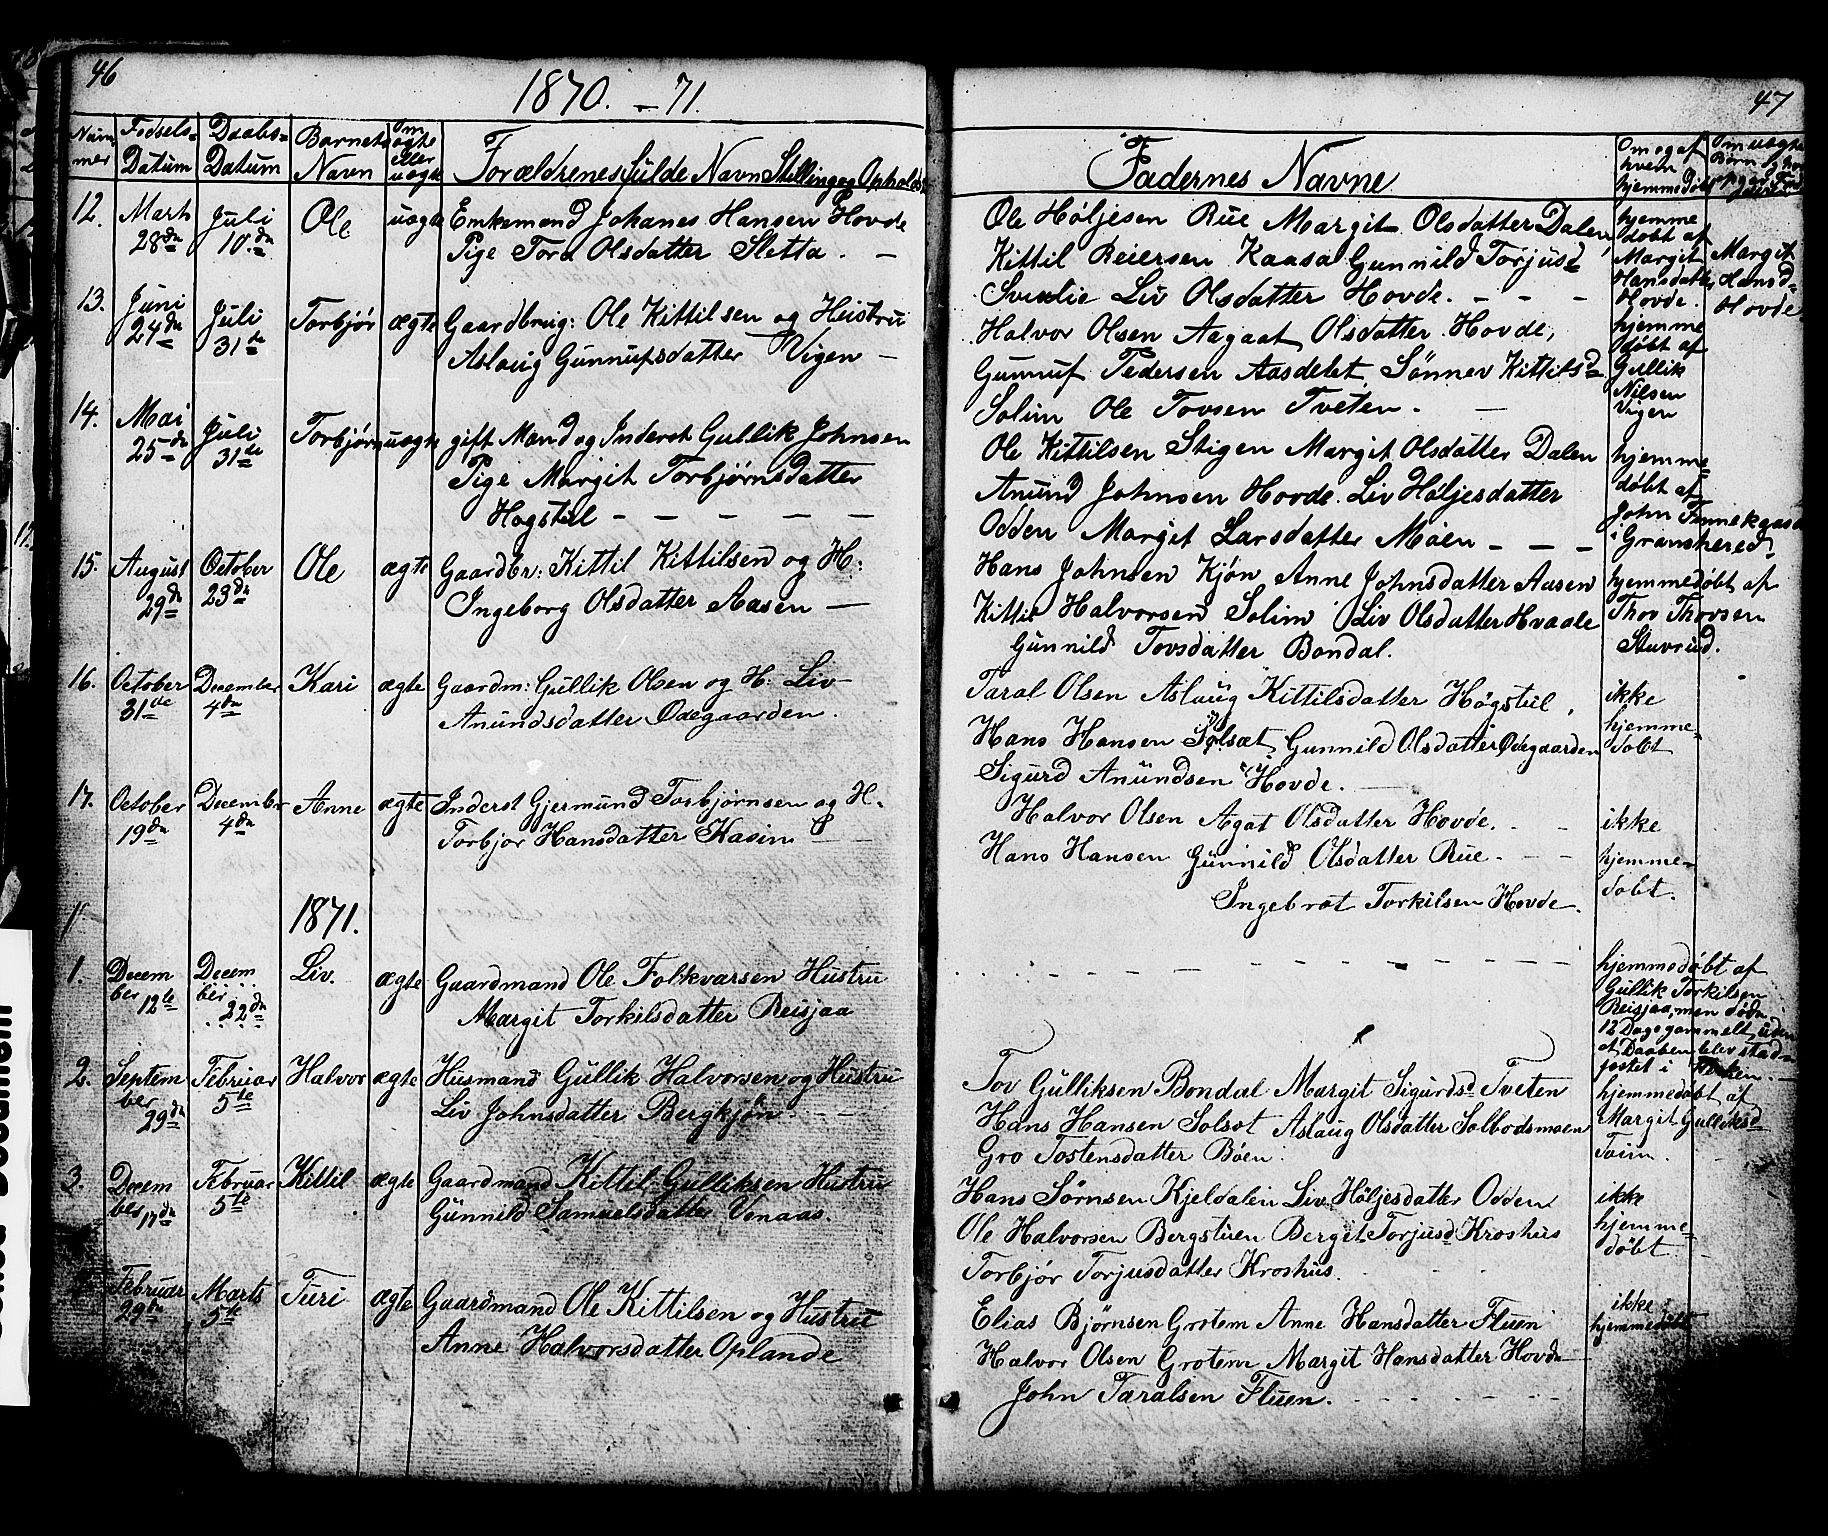 46
1870. - 71.
Num-
mer
Fodsels=
Datum
Daabs=
Datum
Barnets
Navn
Om
ægte
eller
uægte
Forældrenes fulde Navn Stilling og Opholds
12. Marts
28de
Juli
10.de
Ole
uægte
Enkemand Johanes Hansen Hovde
Pige Tora Olsdatter Sletta. —
13. Juni
24de
Juli
31te
Torbjør
ægte
Gaardbrug: Ole Kittilsen og Heistru
Aslaug Gunnufsdatter Vigen —
14. Mai
25de
Juli
31te
Torbjørn
uægte
gift Mand og Inderst Gullik Johnsen
Pige Margit Torbjørnsdatter
Høgstul — — — — —
15. August
29de
October
23de
Ole
ægte
Gaardbr: Kittil Kittilsen og H:
Ingeborg Olsdatter Aasen —
16. October
31te
December
4de
Kari
ægte
Gaardm: Gullik Olsen og H: Liv
Anundsdatter Ødegaarden.
17. October
19de
December
4de
Anne
ægte
Inderst Gjermund Torbjørnsen og H.
Torbjor Hansdatter Kasin — —
1871.
1. Decem
ber 12te
Decem
ber
22de
Liv.
ægte
Gaardmand Ole Folkvarsen Hustru
Margit Torkilsdatter Reisjaa
2. Septem
ber
29de
Februar
5te
Halvor
ægte
Husmand Gullik Halvorsen og Hustru
Liv Johnsdatter Bergkjøn — —
3. Decem
ber 17de
Februar
5te
Kittil
ægte
Gaardmand Kittil Gulliksen Hustru
Gunnild Samuelsdatter Venaas.
Februar
29de
Marts
5te
Turi
ægte
Gaardmand Ole Kittilsen og Hustru
Anne Halvorsdatter Oplande
47
Fadernes Navne
Om og af
hvem
hjemmedøbt
Om uægte
Ole Høljesen Rue Margit Olsdatter Dalen,
Kittil Reiersen Kaasa Gunnild Torjusd=
Svenlie Liv Olsdatter Hovde. — — —
hjemme
døbt af
Margit
Hansdatter
Hovde.
Margit
Hansd=
Hovde
Halvor Olsen Aagaat Olsdatter Hovde,
Gunnuf Pedersen Aasdelet, Sønnev Kittilsd=
Solim Ole Tovsen Tveten. —
hjemme
døbt af
Gullik
Nilsen
Vigen
Ole Kittilsen Stigen Margit Olsdatter Dalen
Anund Johnsen Hovde. Liv Høljesdatter
Odden Margit Larsdatter Moen — — —
hjemme=
døbt af
John Finnekaasa
i Gransherred.
Hans Johnsen Kjøn Anne Johnsdatter Aasen
Kittil Halvorsen Solim Liv Olsdatter Hvaale
Gunnild Tovsdatter Bondal.
hjemmedøbt af
Thov Thovsen
Stuvrud.
Taral Olsen Aslaug Kittilsdatter Høgstul,
Hans Hansen Solsæt Gunnild Olsdatter Ødegaarden
Sigurd Anundsen Hovde. —
ikke
hjemme=
døbt
Halvor Olsen Agat Olsdatter Hovde. - -
Hans Hansen Gunnild Olsdatter Rue. - - -
Ingebret Torkilsen Hovde.
ikke
hjemme=
døbt.
hjemmedøbt af
Gullik Torkilsen
Reisjaa, men døde
12 Dage gammelt uden
at Daaben blev stad=
fæstet i Kirken. -
Tov Gulliksen Bondal Margit Sigurds= Tveten
Hans Hansen Solsot Aslaug Olsdatter Solbodsmoen
Gro Tostensdatter Bøen.
hjemmedøbt af
Margit Gulliksd
Toim.
Hans Sørnsen Kjeldalen Liv Høljesdatter Odden
Ole Halvorsen Bergstuen Berget Torjusd= Kroshus
Torbjør Torjusdatter Kroshus.
ikke
hjemme=
døbt
Elias Bjørnsen Grotem Anne Hansdatter Fluen
Halvor Olsen Grotem Margit Hansdatter Hovde
John Taralsen Fluen. - - - -
ikke
hjemmedøbt